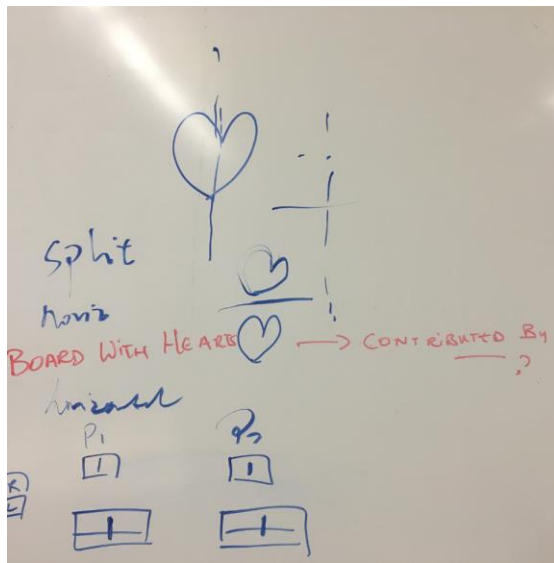 Split
horiz
BOARD WITH HEARTS → CONTRIBUTED BY
?
horizontal
P1 P2
1 1
R
L